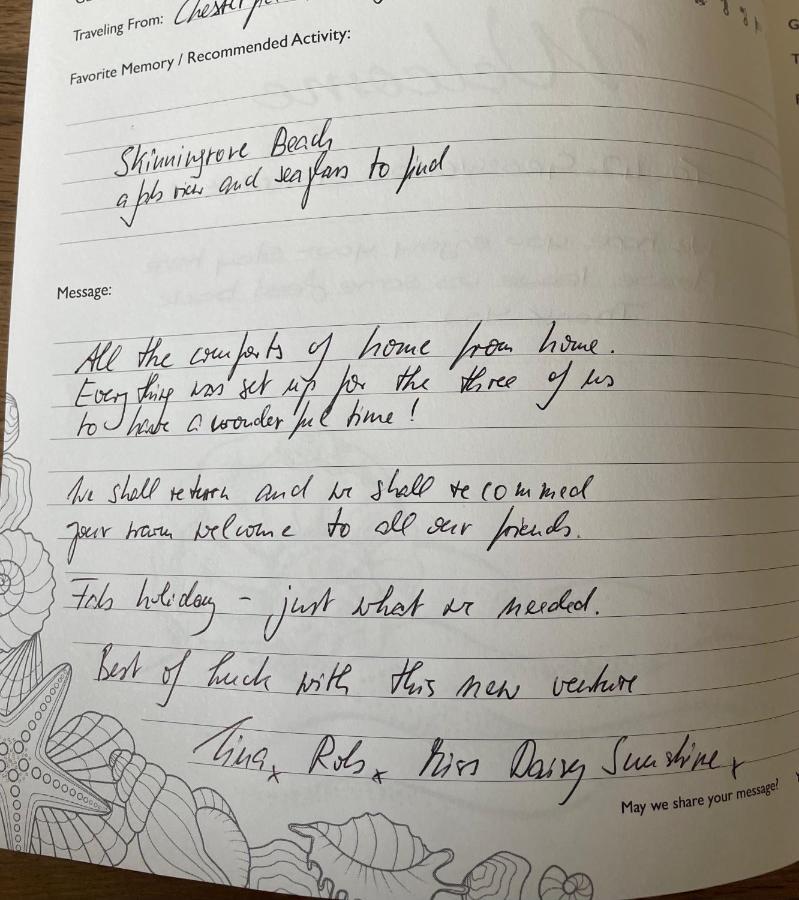 Traveling From: Chesterfield
Favorite Memory / Recommended Activity:
Skinningrove Beach
a fab view and seaglass to find
Message:
All the comforts of home from home.
Everything was set up for the three of us
to have a wonderful time!
We shall return and we shall recommed
your warm welcome to all our friends.
Fab holiday - just what we needed.
Best of luck with this new venture
Tina x Rob x Miss Daisy Sunshine x
May we share your message?